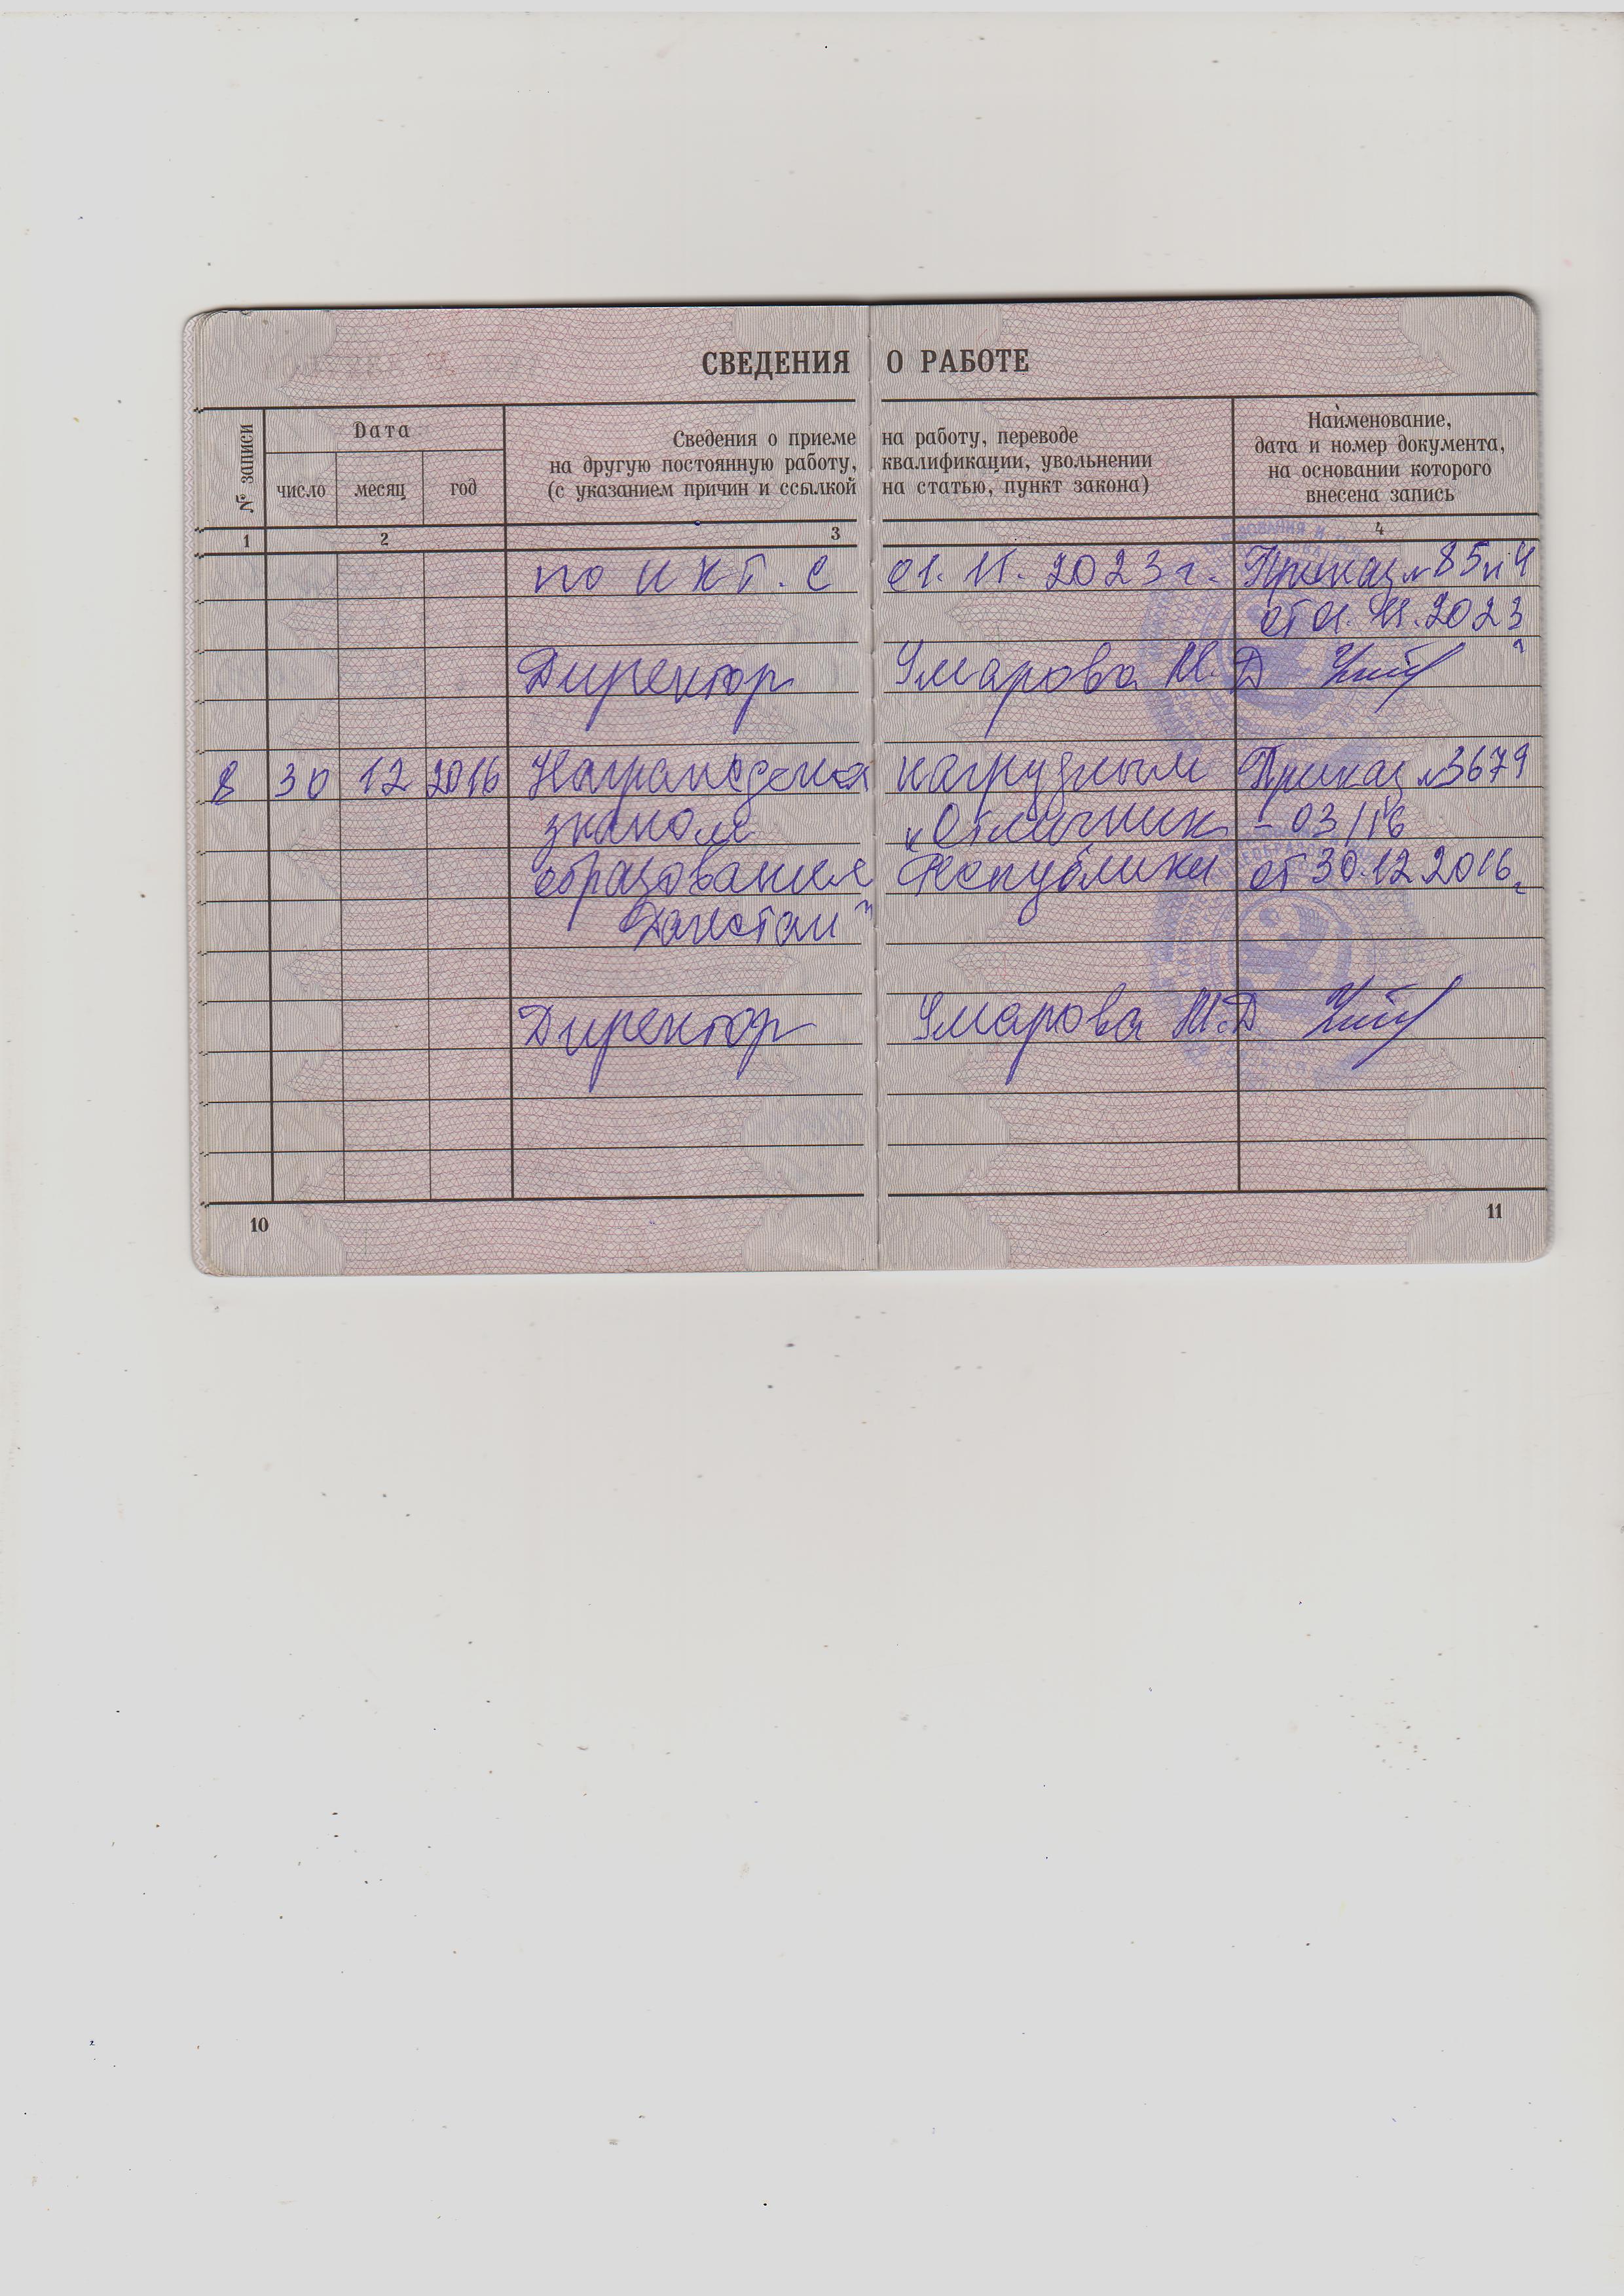 СВЕДЕНИЯ О РАБОТЕ
№ записи
Дата
число месяц год
Сведения о приеме на работу, переводе
на другую постоянную работу, квалификации, увольнении
(с указанием причин и ссылкой на статью, пункт закона)
Наименование,
дата и номер документа,
на основании которого
внесена запись
1 2 3 4
по ИКТ. С 01. 11. 2023 г. Приказ № 85
от 01. 11. 2023
Директор Умарова Д
8 30 12 2016 Награждена нагрудным Приказ №3679
знаком „Отличник - 03/16
образования Республики от 30.12 2016г
Дагестан”
Директор Умарова Д
10 11